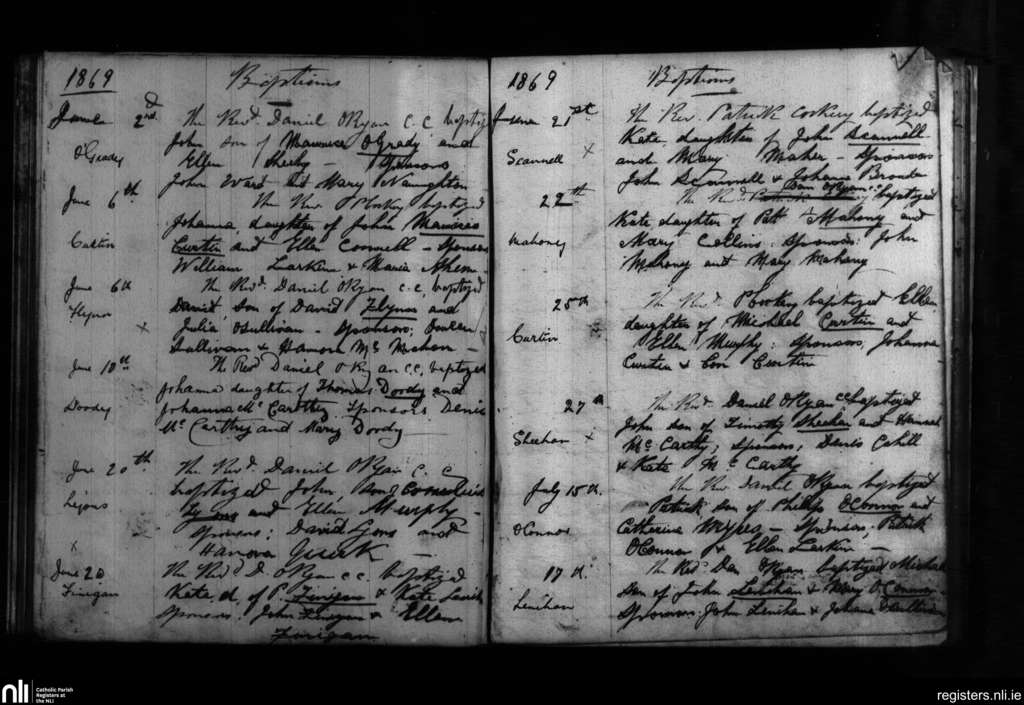 1869 Baptisms
June 2nd. The Revd. Daniel ORyan C.C. baptized
OGrady John son of Maurice OGrady and
Ellen Sheehy - Sponsors
John Ward & Mary Naughton
June 6th The Rev P Cookery baptized
Johanna, daughter of John Maurice
Curtin Curtin and Ellen Connell - Sponsors
William Larkin & Maria Ahern
June 6th The Revd. Daniel ORyan C.C. baptized
Flynn Daniel, son of David Flynn and
x Julia OSullivan - Sponsors;
Sullivan & Hanora McMahon -
June 18th The Revd Daniel ORyan C.C. baptized
Johanna daughter of Thomas Doody and
Doody Johanna McCarthy Sponsors Denis
McCarthy and Mary Doody
June 20th The Revd. Daniel ORyan C.C
baptized John, son of Cornelius
Lyons Lyons and Ellen Murphy -
Sponsors; David Lyons and
x Hanora Quirk -
June 20 The Revd D. ORyan C.C. baptized
Finigan Kate, d. of P. Finigan & Kate
Sponsors. John Finigan & Ellen
Finigan
1869 Baptisms
June 21st The Rev. Patrick Cookery baptized
Kate daughter of John Scannell
Scannell x and Mary Maher - Sponsors
John Scannell & Johana
22th The Revd. Patrick Dan ORyan C.C. baptized
Kate daughter of Patt Mahony and
Mahony Mary Collins: Sponsors: John
Mahony and Mary Mahony
25th The Revd. P Cookery baptized Ellen
daughter of Michael Curtin and
Curtin Ellen Murphy: Sponsors, Johanna
Curtin & Con Curtin
27th The Revd. Daniel ORyan CC baptized
John son of Timothy Sheehan and Hannah
Sheehan x McCarthy; Sponsors, Denis Cahill
& Kate McCarthy
July 15th. The Revd Daniel ORyan baptized
Patrick son of Philip OConnor and
OConnor Catherine - Sponsors; Patrick
OConnor & Ellen Larkin -
17th. The Revd. Dan ORyan baptized Michael
Son of John Lenihan & Mary OConnor
Lenihan Sponsors John Lenihan & Johana OSullivan
nli Catholic Parish
Registers at
the NLI
registers.nli.ie